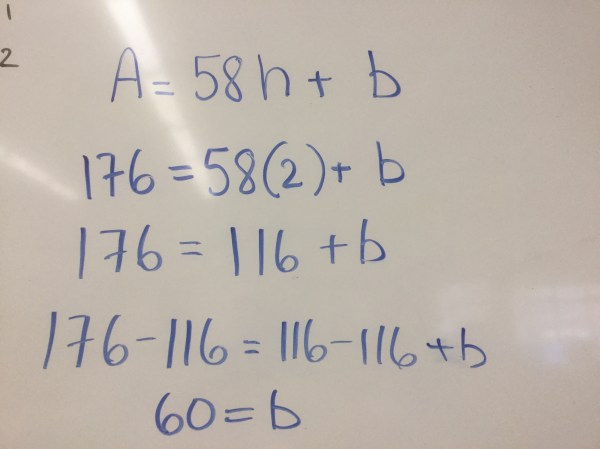 1
2
A = 58h + b
176 = 58(2) + b
176 = 116 + b
176 - 116 = 116 - 116 + b
60 = b